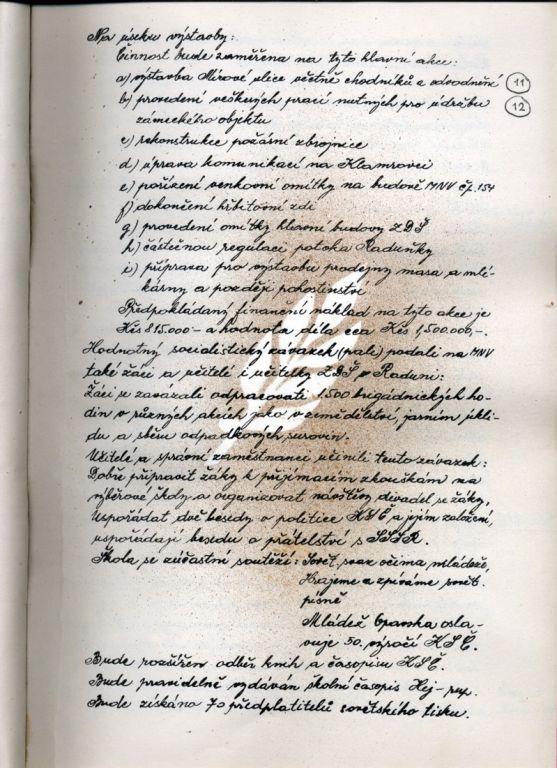 Na úseku výstavby:
Činnost bude zaměřena na tyto hlavní akce:
a) výstavba Mírové ulice včetně chodníků a odvodnění 11
b) provedení veškerých prací nutných pro údržbu 12
zámeckého objektu
c) rekonstrukce požární zbrojnice
d) úprava komunikací na Klamrovci
e) pořízení venkovní omítky na budově MNV čp. 154
f) dokončení hřbitovní zdi
g) provedení omítky hlavní budovy ZDŠ
h) částečnou regulaci potoka Raduňky
i) příprava pro výstavbu prodejny masa a mlé-
kárny a později pohostinství
Předpokládaný finanční náklad na tyto akce je
Kčs 815.000.- a hodnota díla cca Kčs 1,500.000,-.
Hodnotný socialistický závazek podali na MNV
také žáci a učitelé i učitelky ZDŠ v Raduni:
Žáci se zavázali odpracovati 1.500 brigádnických ho-
din v různých akcích jako v zemědělství, jarním úkli-
du a sběru odpadkových surovin.
Učitelé a správní zaměstnanci učinili tento závazek:
Dobře připravit žáky k přijímacím zkouškám na
výběrové školy a organizovat návštěvy divadel se žáky,
Uspořádat dvě besedy o politice KSČ a jejím založení,
uspořádají besedu o přátelství s SSSR.
Škola se zúčastní soutěží: Sovět. svaz očima mládeže,
Hrajeme a zpíváme sovět.
písně
Mládež Opavska osla-
vuje 50. výročí KSČ.
Bude rozšířen odběr knih a časopisu KSČ.
Bude pravidelně vydáván školní časopis Hej-rup.
Bude získáno 70 předplatitelů sovětského tisku.